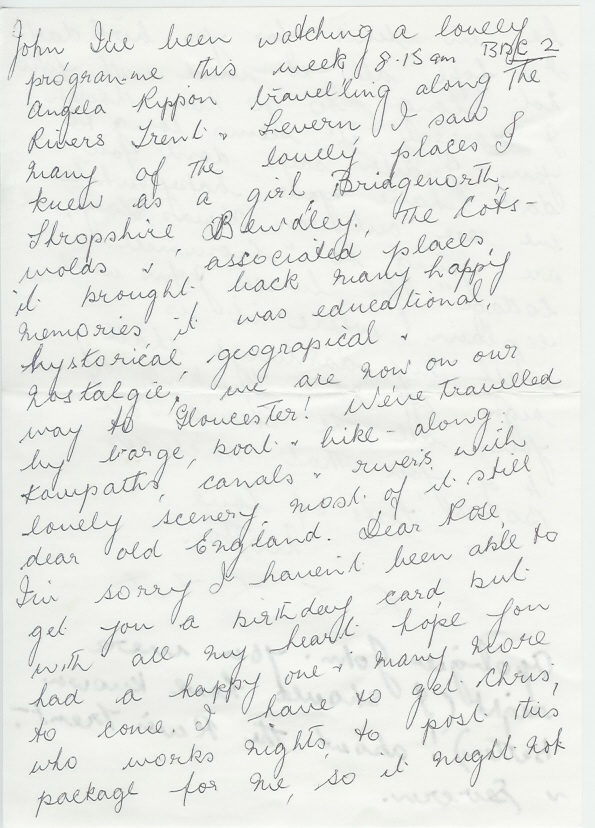 John I've been watching a lovely
programme this week 8.15am BBC 2
Angela Rippon travelling along the
Rivers Trent & Severn I saw
many of the lovely places I
knew as a girl, Bridgenorth,
Shropshire Bewdley, The Cots-
wolds & associated places,
it brought back many happy
memories it was educational,
hystorical, geograpical &
nostalgic, we are now on our
way to Gloucester! We've travelled
by barge, boat & bike - along
towpaths, canals & rivers with
lovely scenery most of it still
dear old England. Dear Rose,
I'm sorry I haven't been able to
get you a birthday card but
with all my heart hope you
had a happy one & many more
to come. I have to get Chris,
who works nights, to post this
package for me, so it might not